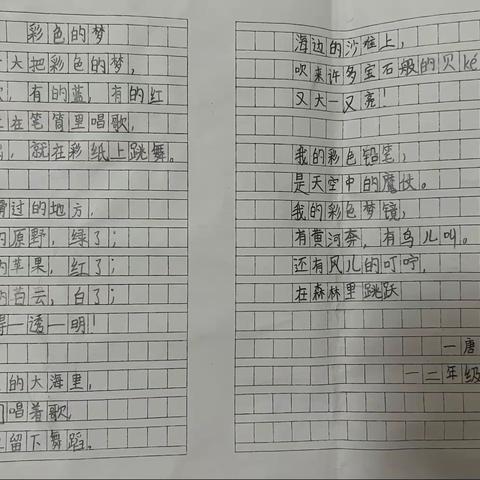 彩色的梦
大把彩色的梦，
，有的蓝，有的红
在笔筒里唱歌，
，就在彩纸上跳舞。
滑过的地方，
的原野，绿了；
的苹果，红了；
的苔云，白了；
得一透一明！
的大海里，
们唱着歌
留下舞蹈。
海边的沙堆上，
吹来许多宝石般的贝ké
又大一又亮！
我的彩色铅笔，
是天空中的魔仗。
我的彩色梦镜，
有黄河奔，有鸟儿叫。
还有风儿的叮咛，
在森林里跳跃
一唐
一二年级